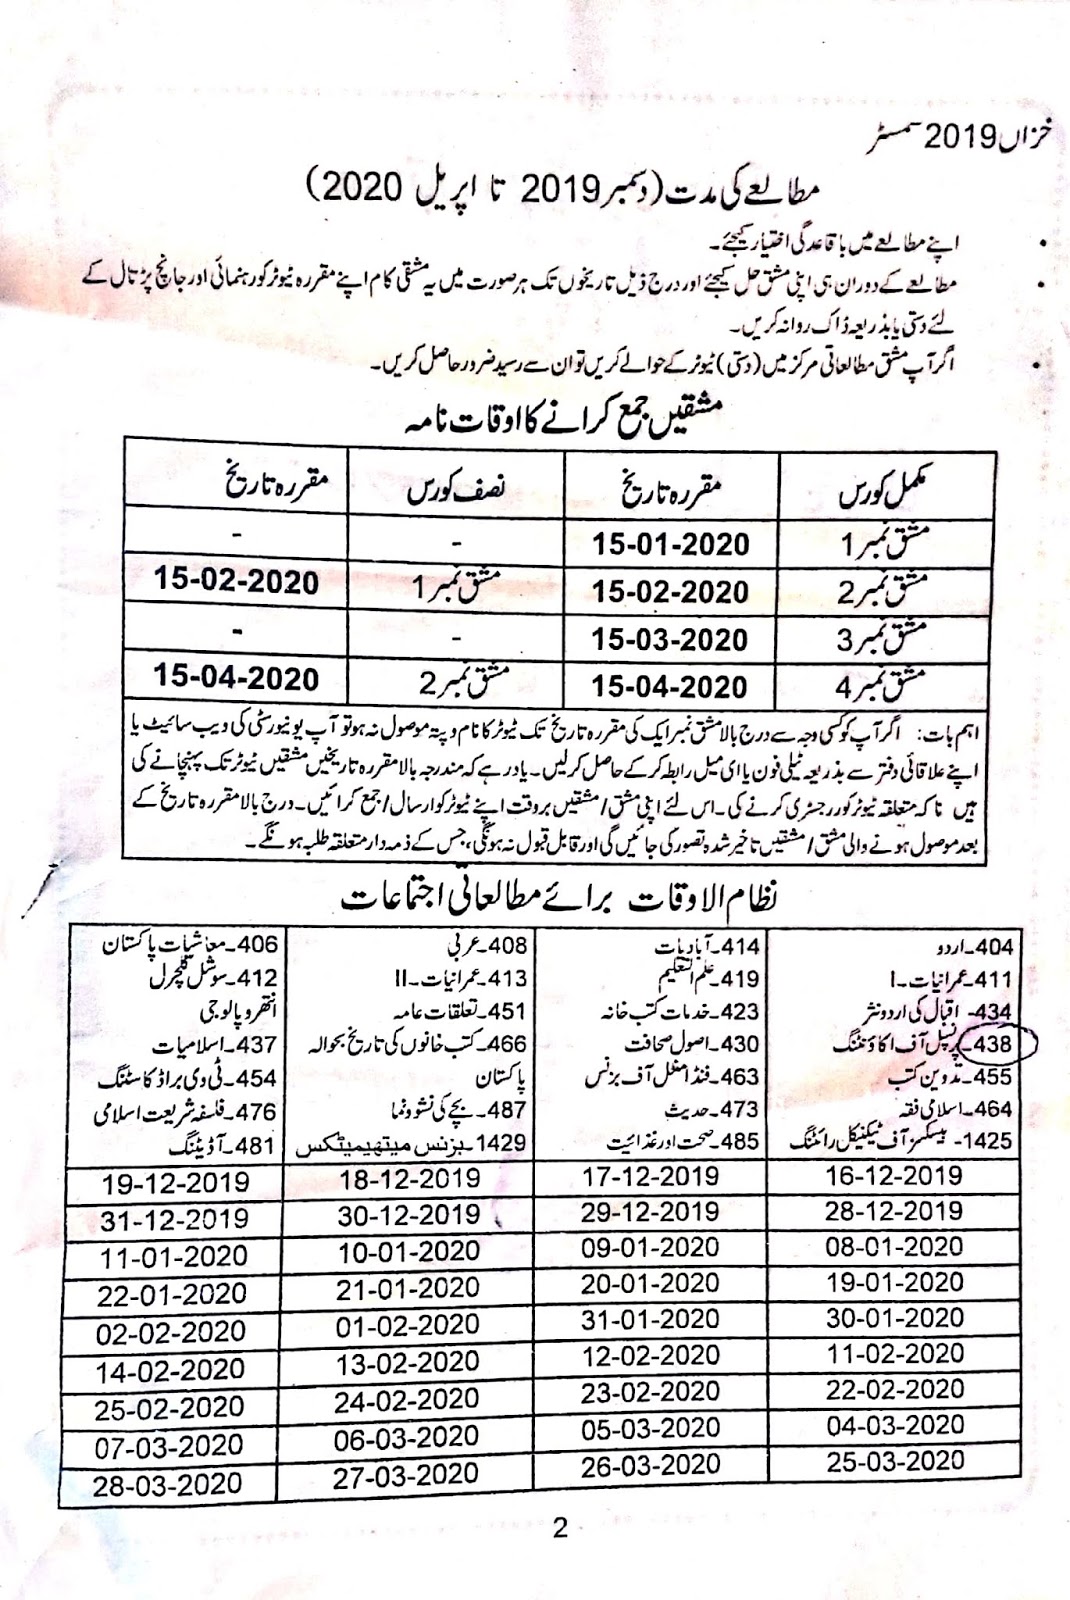 خزاں 2019 سمسٹر
مطالعے کی مدت (دسمبر 2019 تا اپریل 2020)
• اپنے مطالعے میں باقاعدگی اختیار کیجئے۔
• مطالعے کے دوران ہی اپنی مشق حل کیجئے اور درج ذیل تاریخوں تک ہر صورت میں یہ مشقی کام اپنے مقررہ ٹیوٹر کو رہنمائی اور جانچ پڑتال کے
لئے دستی یا بذریعہ ڈاک روانہ کریں۔
• اگر آپ مشق مطالعاتی مرکز میں (دستی) ٹیوٹر کے حوالے کریں تو ان سے رسید ضرور حاصل کریں۔
مشقیں جمع کرانے کا اوقات نامہ
مکمل کورس مقررہ تاریخ نصف کورس مقررہ تاریخ
مشق نمبر 1 15-01-2020 - -
مشق نمبر 2 15-02-2020 مشق نمبر 1 15-02-2020
مشق نمبر 3 15-03-2020 - -
مشق نمبر 4 15-04-2020 مشق نمبر 2 15-04-2020
اہم بات: اگر آپ کو کسی وجہ سے درج بالا مشق نمبر ایک کی مقررہ تاریخ تک ٹیوٹر کا نام و پتہ موصول نہ ہو تو آپ یونیورسٹی کی ویب سائیٹ یا
اپنے علاقائی دفتر سے بذریعہ ٹیلی فون یا ای میل رابطہ کر کے حاصل کر لیں۔ یاد رہے کہ مندرجہ بالا مقررہ تاریخیں مشقیں ٹیوٹر تک پہنچانے کی
ہیں نا کہ متعلقہ ٹیوٹر کو رجسٹری کرنے کی۔ اس لئے اپنی مشق/مشقیں بروقت اپنے ٹیوٹر کو ارسال/جمع کرائیں۔ درج بالا مقررہ تاریخ کے
بعد موصول ہونے والی مشق/مشقیں تاخیر شدہ تصور کی جائیں گی اور قابل قبول نہ ہونگی، جس کے ذمہ دار متعلقہ طلبہ ہونگے۔
نظام الاوقات برائے مطالعاتی اجتماعات
404۔اردو 414۔آبادیات 408۔عربی 406۔معاشیات پاکستان
411۔عمرانیات۔I 419۔علم التعلیم 413۔عمرانیات۔II 412۔سوشل کلچرل
434۔اقبال کی اردو نثر 423۔خدمات کتب خانہ 451۔تعلقات عامہ انتھروپالوجی
438۔پرنسپل آف اکاؤنٹنگ 430۔اصول صحافت 466۔کتب خانوں کی تاریخ بحوالہ 437۔اسلامیات
455۔تدوین کتب 463۔فنڈامنٹل آف بزنس پاکستان 454۔ٹی وی براڈ کاسٹنگ
464۔اسلامی فقہ 473۔حدیث 487۔بچے کی نشوونما 476۔فلسفہ شریعت اسلامی
1425۔بیسکس آف ٹیکنیکل رائٹنگ 485۔صحت اور غذائیت 1429۔بزنس میتھیمیٹکس 481۔آڈیٹنگ
16-12-2019 17-12-2019 18-12-2019 19-12-2019
28-12-2019 29-12-2019 30-12-2019 31-12-2019
08-01-2020 09-01-2020 10-01-2020 11-01-2020
19-01-2020 20-01-2020 21-01-2020 22-01-2020
30-01-2020 31-01-2020 01-02-2020 02-02-2020
11-02-2020 12-02-2020 13-02-2020 14-02-2020
22-02-2020 23-02-2020 24-02-2020 25-02-2020
04-03-2020 05-03-2020 06-03-2020 07-03-2020
25-03-2020 26-03-2020 27-03-2020 28-03-2020
2